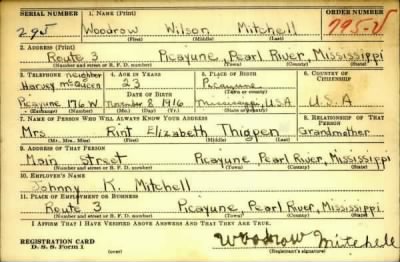 SERIAL NUMBER 1. NAME (Print) ORDER NUMBER
295 Woodrow Wilson Mitchell 795-V
(First) (Middle) (Last)
2. ADDRESS (Print)
Route 3 Picayune, Pearl River, Mississippi
(Number and street or R. F. D. number) (Town) (County) (State)
3. TELEPHONE neighbor 4. AGE IN YEARS 5. PLACE OF BIRTH 6. COUNTRY OF CITIZENSHIP
Harvey McQueen 23 Picayune
DATE OF BIRTH (Town or county)
Picayune 176 W November 8, 1916 Mississippi, U.S.A U.S.A
(Exchange) (Number) (Mo.) (Day) (Yr.) (State or country)
7. NAME OF PERSON WHO WILL ALWAYS KNOW YOUR ADDRESS 8. RELATIONSHIP OF THAT PERSON
Mrs Rint Elizabeth Thigpen Grandmother
(Mr., Mrs., Miss) (First) (Middle) (Last)
9. ADDRESS OF THAT PERSON
Main Street Picayune Pearl River, Mississippi
(Number and street or R. F. D. number) (Town) (County) (State)
10. EMPLOYER'S NAME
Johnny K. Mitchell
11. PLACE OF EMPLOYMENT OR BUSINESS
Route 3 Picayune, Pearl River, Mississippi
(Number and street or R. F. D. number) (Town) (County) (State)
I AFFIRM THAT I HAVE VERIFIED ABOVE ANSWERS AND THAT THEY ARE TRUE.
REGISTRATION CARD Woodrow Mitchell
D. S. S. Form 1 (over) (Registrant's signature)